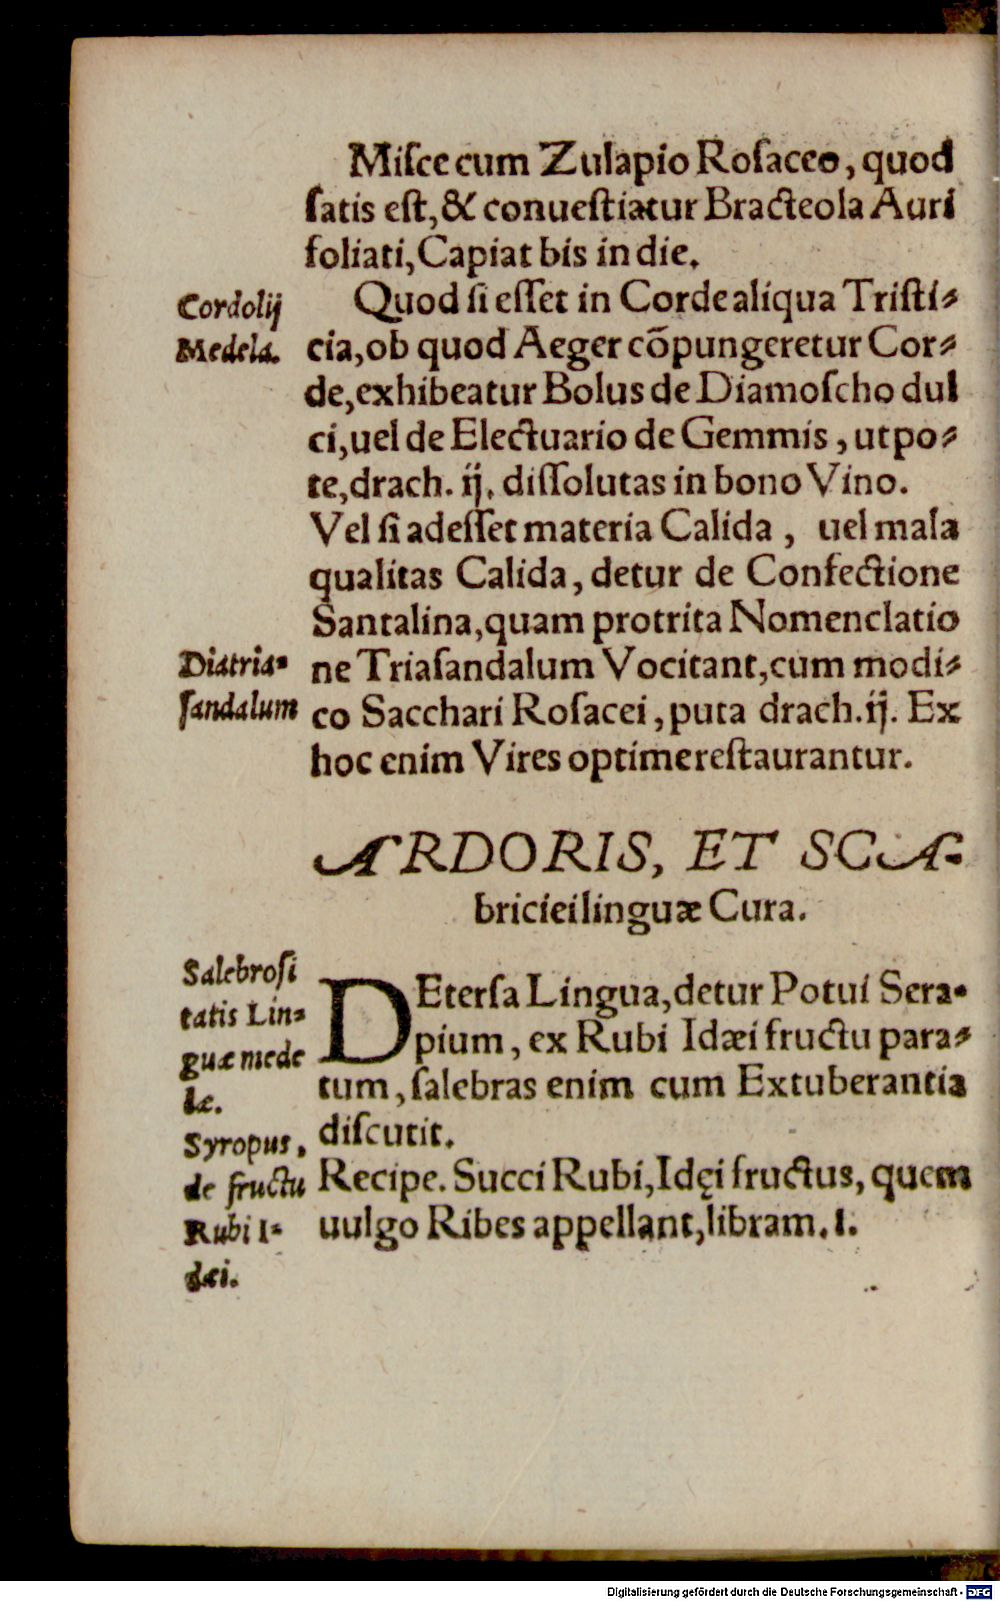 Miſce cum Zulapio Roſaceo, quod
ſatis eſt, & conueſtiatur Bracteola Auri
foliati, Capiat bis in die.
Cordolij
Medela.
Quod ſi eſſet in Corde aliqua Triſti⸗
cia, ob quod Aeger cōpungeretur Cor⸗
de, exhibeatur Bolus de Diamoſcho dul
ci, uel de Electuario de Gemmis, utpo⸗
te, drach. ij. diſſolutas in bono Vino.
Vel ſi adeſſet materia Calida, uel mala
qualitas Calida, detur de Confectione
Santalina, quam protrita Nomenclatio
Diatria⸗
ſandalum
ne Triaſandalum Vocitant, cum modi⸗
co Sacchari Roſacei, puta drach. ij. Ex
hoc enim Vires optime reſtaurantur.
ARDORIS, ET SCA⸗
briciei linguæ Cura.
Salebroſi
tatis Lin⸗
guæ mede
læ.
DEterſa Lingua, detur Potui Sera⸗
pium, ex Rubi Idæi fructu para⸗
tum, ſalebras enim cum Extuberantia
diſcutit.
Syropus,
de fructu
Rubi I⸗
dæi.
Recipe. Succi Rubi, Idęi fructus, quem
uulgo Ribes appellant, libram. 1.
Digitalisierung gefördert durch die Deutsche Forschungsgemeinschaft - DFG